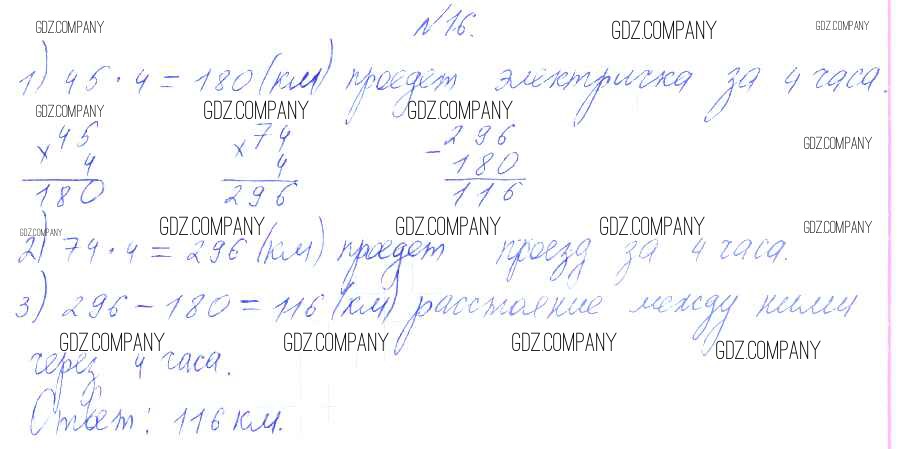 №16.
GDZ.COMPANY GDZ.COMPANY GDZ.COMPANY
1) 45 · 4 = 180 (км) проедет электричка за 4 часа.
GDZ.COMPANY GDZ.COMPANY GDZ.COMPANY
45 74 296
× 4 × 4 − 180 GDZ.COMPANY
180 296 116
GDZ.COMPANY GDZ.COMPANY GDZ.COMPANY GDZ.COMPANY GDZ.COMPANY
2) 74 · 4 = 296 (км) проедет проезд за 4 часа.
3) 296 − 180 = 116 (км) расстояние между ними
GDZ.COMPANY GDZ.COMPANY GDZ.COMPANY GDZ.COMPANY
через 4 часа.
Ответ: 116 км.